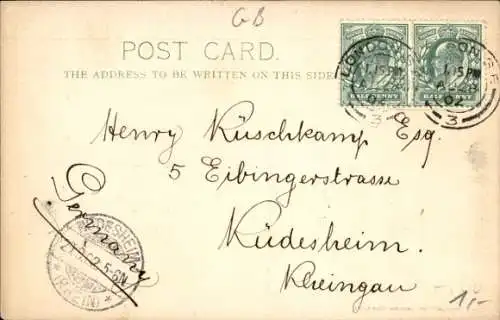 GB
POST CARD.
THE ADDRESS TO BE WRITTEN ON THIS SIDE
HALFPENNY HALFPENNY
LONDON
1.15PM
02
3
1.15PM
02
3
Henry Rüschkamp Esq.
5 Eibingerstrasse
Rüdesheim.
Rheingau
Germany
RÜDESHEIM
5-6N
(RHEIN)
1,-